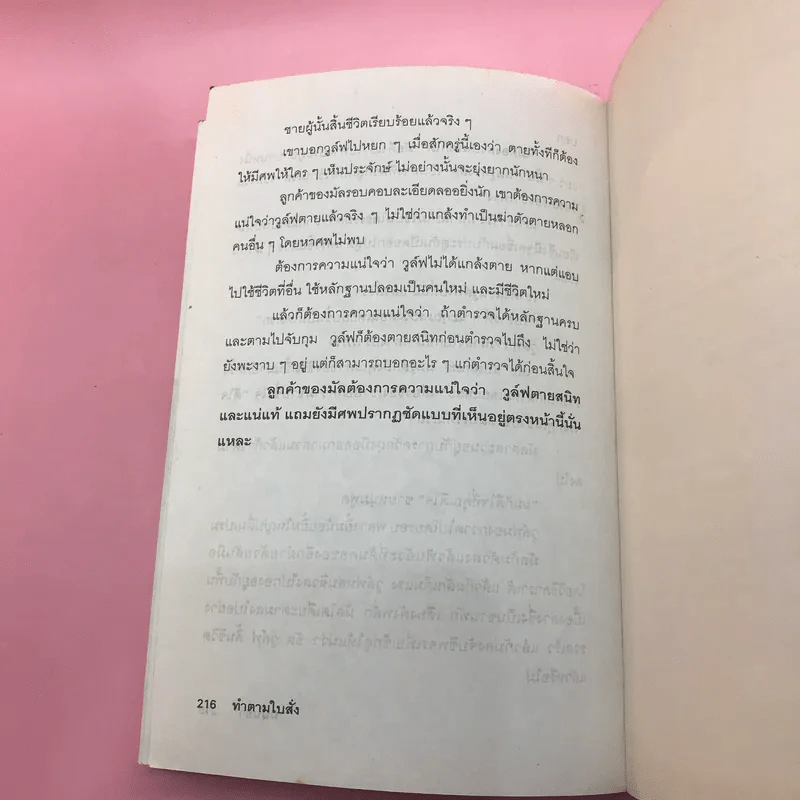 ชายผู้นั้นสิ้นชีวิตเรียบร้อยแล้วจริง ๆ
เขาบอกวูล์ฟไปหยก ๆ เมื่อสักครู่นี้เองว่า ตายทั้งทีก็ต้อง
ให้มีศพให้ใคร ๆ เห็นประจักษ์ ไม่อย่างนั้นจะยุ่งยากนักหนา
ลูกค้าของมัลรอบคอบละเอียดลออยิ่งนัก เขาต้องการความ
แน่ใจว่าวูล์ฟตายแล้วจริง ๆ ไม่ใช่ว่าแกล้งทำเป็นฆ่าตัวตายหลอก
คนอื่น ๆ โดยหาศพไม่พบ
ต้องการความแน่ใจว่า วูล์ฟไม่ได้แกล้งตาย หากแต่แอบ
ไปใช้ชีวิตที่อื่น ใช้หลักฐานปลอมเป็นคนใหม่ และมีชีวิตใหม่
แล้วก็ต้องการความแน่ใจว่า ถ้าตำรวจได้หลักฐานครบ
และตามไปจับกุม วูล์ฟก็ต้องตายสนิทก่อนตำรวจไปถึง ไม่ใช่ว่า
ยังพะงาบ ๆ อยู่ แต่ก็สามารถบอกอะไร ๆ แก่ตำรวจได้ก่อนสิ้นใจ
ลูกค้าของมัลต้องการความแน่ใจว่า วูล์ฟตายสนิท
และแน่แท้ แถมยังมีศพปรากฏชัดแบบที่เห็นอยู่ตรงหน้านี้นั่น
แหละ
216 ทำตามใบสั่ง